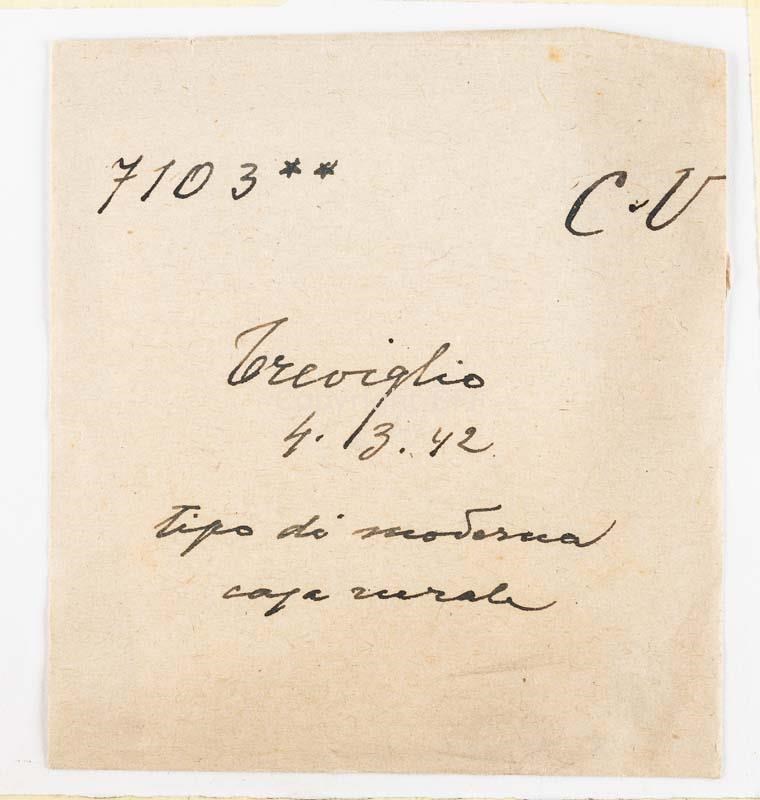 7103** C.V
Treviglio
4.3.42
tipo di moderna
casa rurale